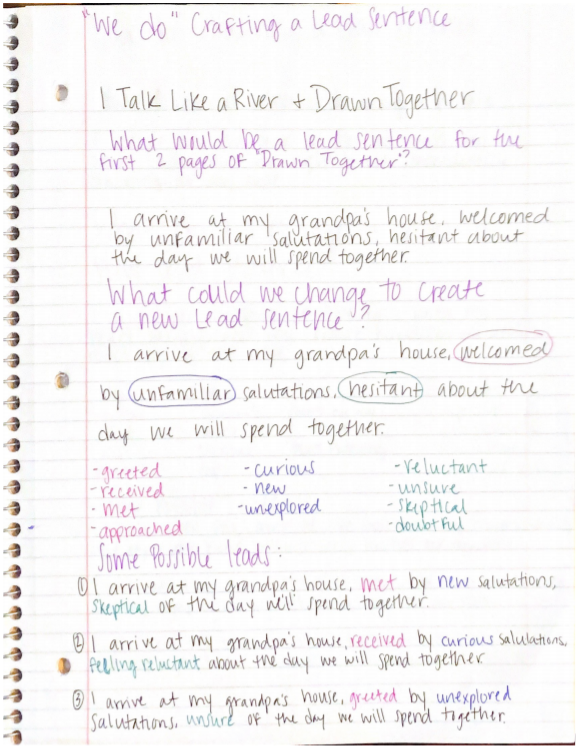 "We do" Crafting a Lead Sentence
I Talk Like a River + Drawn Together
What would be a lead sentence for the
first 2 pages of "Drawn Together"?
I arrive at my grandpa's house, welcomed
by unfamiliar salutations, hesitant about
the day we will spend together.
What could we change to create
a new Lead Sentence?
I arrive at my grandpa's house, welcomed
by unfamiliar salutations, hesitant about the
day we will spend together.
- greeted - curious - reluctant
- received - new - unsure
- met - unexplored - skeptical
- approached - doubtful
Some Possible leads:
① I arrive at my grandpa's house, met by new salutations,
skeptical of the day we'll spend together.
② I arrive at my grandpa's house, received by curious salulations,
feeling reluctant about the day we will spend together
③ I arrive at my grandpa's house, greeted by unexplored
salutations, unsure of the day we will spend together.